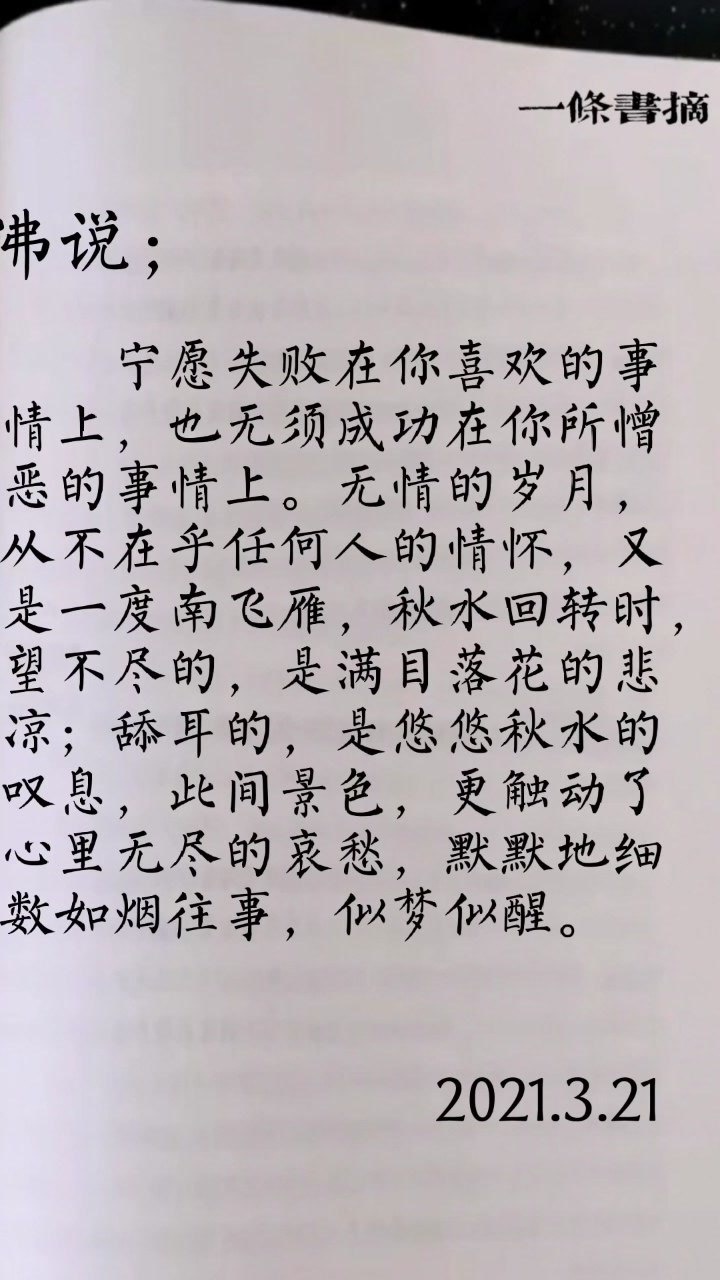 一條書摘
佛说；
宁愿失败在你喜欢的事
情上，也无须成功在你所憎
恶的事情上。无情的岁月，
从不在乎任何人的情怀，又
是一度南飞雁，秋水回转时，
望不尽的，是满目落花的悲
凉；舔耳的，是悠悠秋水的
叹息，此间景色，更触动了
心里无尽的哀愁，默默地细
数如烟往事，似梦似醒。
2021.3.21